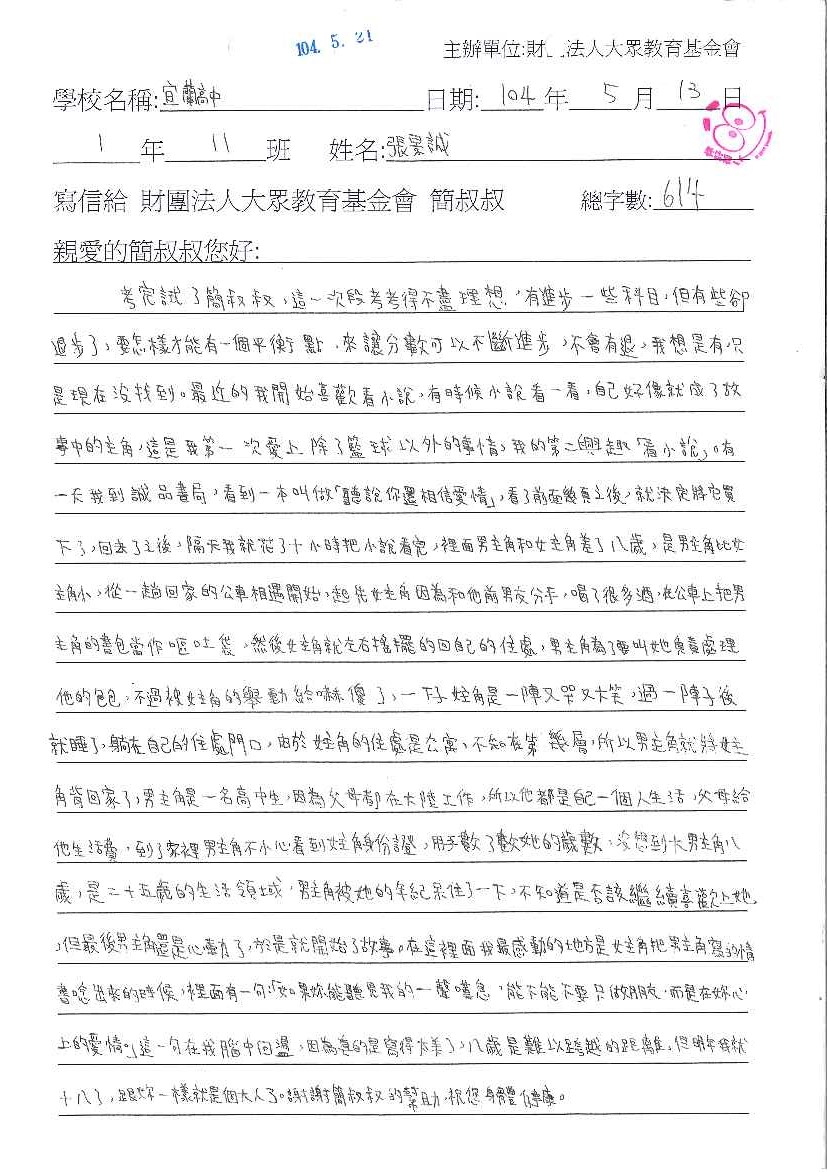 104. 5. 21
主辦單位:財 法人大眾教育基金會
學校名稱:宜蘭高中 日期: 104 年 5 月 13 日
1 年 11 班 姓名:張景誠
寫信給 財團法人大眾教育基金會 簡叔叔 總字數: 614
親愛的簡叔叔您好:
考完試了簡叔叔,這一次段考考得不盡理想,有進步一些科目,但有些卻
退步了,要怎樣才能有一個平衡點,來讓分數可以不斷進步,不會有退,我想是有,只
是現在沒找到。最近的我開始喜歡看小說,有時候小說看一看,自己好像就成了故
事中的主角,這是我第一次愛上除了籃球以外的事情,我的第二興趣「看小說」。有
一天我到誠品書局,看到一本叫做「聽說你還相信愛情」,看了前面幾頁之後,就決定將它買
下了,回去了之後,隔天我就花了十小時把小說看完,裡面男主角和女主角差了八歲,是男主角比女
主角小,從一趟回家的公車相遇開始,起先女主角因為和他前男友分手,喝了很多酒,在公車上把男
主角的書包當作嘔吐袋,然後女主角就左右搖擺的回自己的住處,男主角為了要叫她負責處理
他的包包,不過被女主角的舉動給嚇傻了,一下子女主角是一陣又哭又大笑,過一陣子後
就睡了,躺在自己的住處門口,由於女主角的住處是公寓,不知在第幾層,所以男主角就將女主
角背回家了,男主角是一名高中生,因為父母都在大陸工作,所以他都是自己一個人生活,父母給
他生活費,到了家裡男主角不小心看到女主角身份證,用手數了數她的歲數,沒想到大男主角八
歲,是二十五歲的生活領域,男主角被她的年紀呆住了一下,不知道是否該繼續喜歡上她
,但最後男主角還是心動了,於是就開始了故事。在這裡面我最感動的地方是女主角把男主角寫的情
書唸出來的時候,裡面有一句:「如果妳能聽見我的一聲嘆息,能不能不要只做朋友,而是在妳心
上的愛情。」這一句在我腦中回盪,因為真的是寫得太美了,八歲是難以跨越的距離,但明年我就
十八了,跟妳一樣就是個大人了。謝謝簡叔叔的幫助,祝您身體健康。